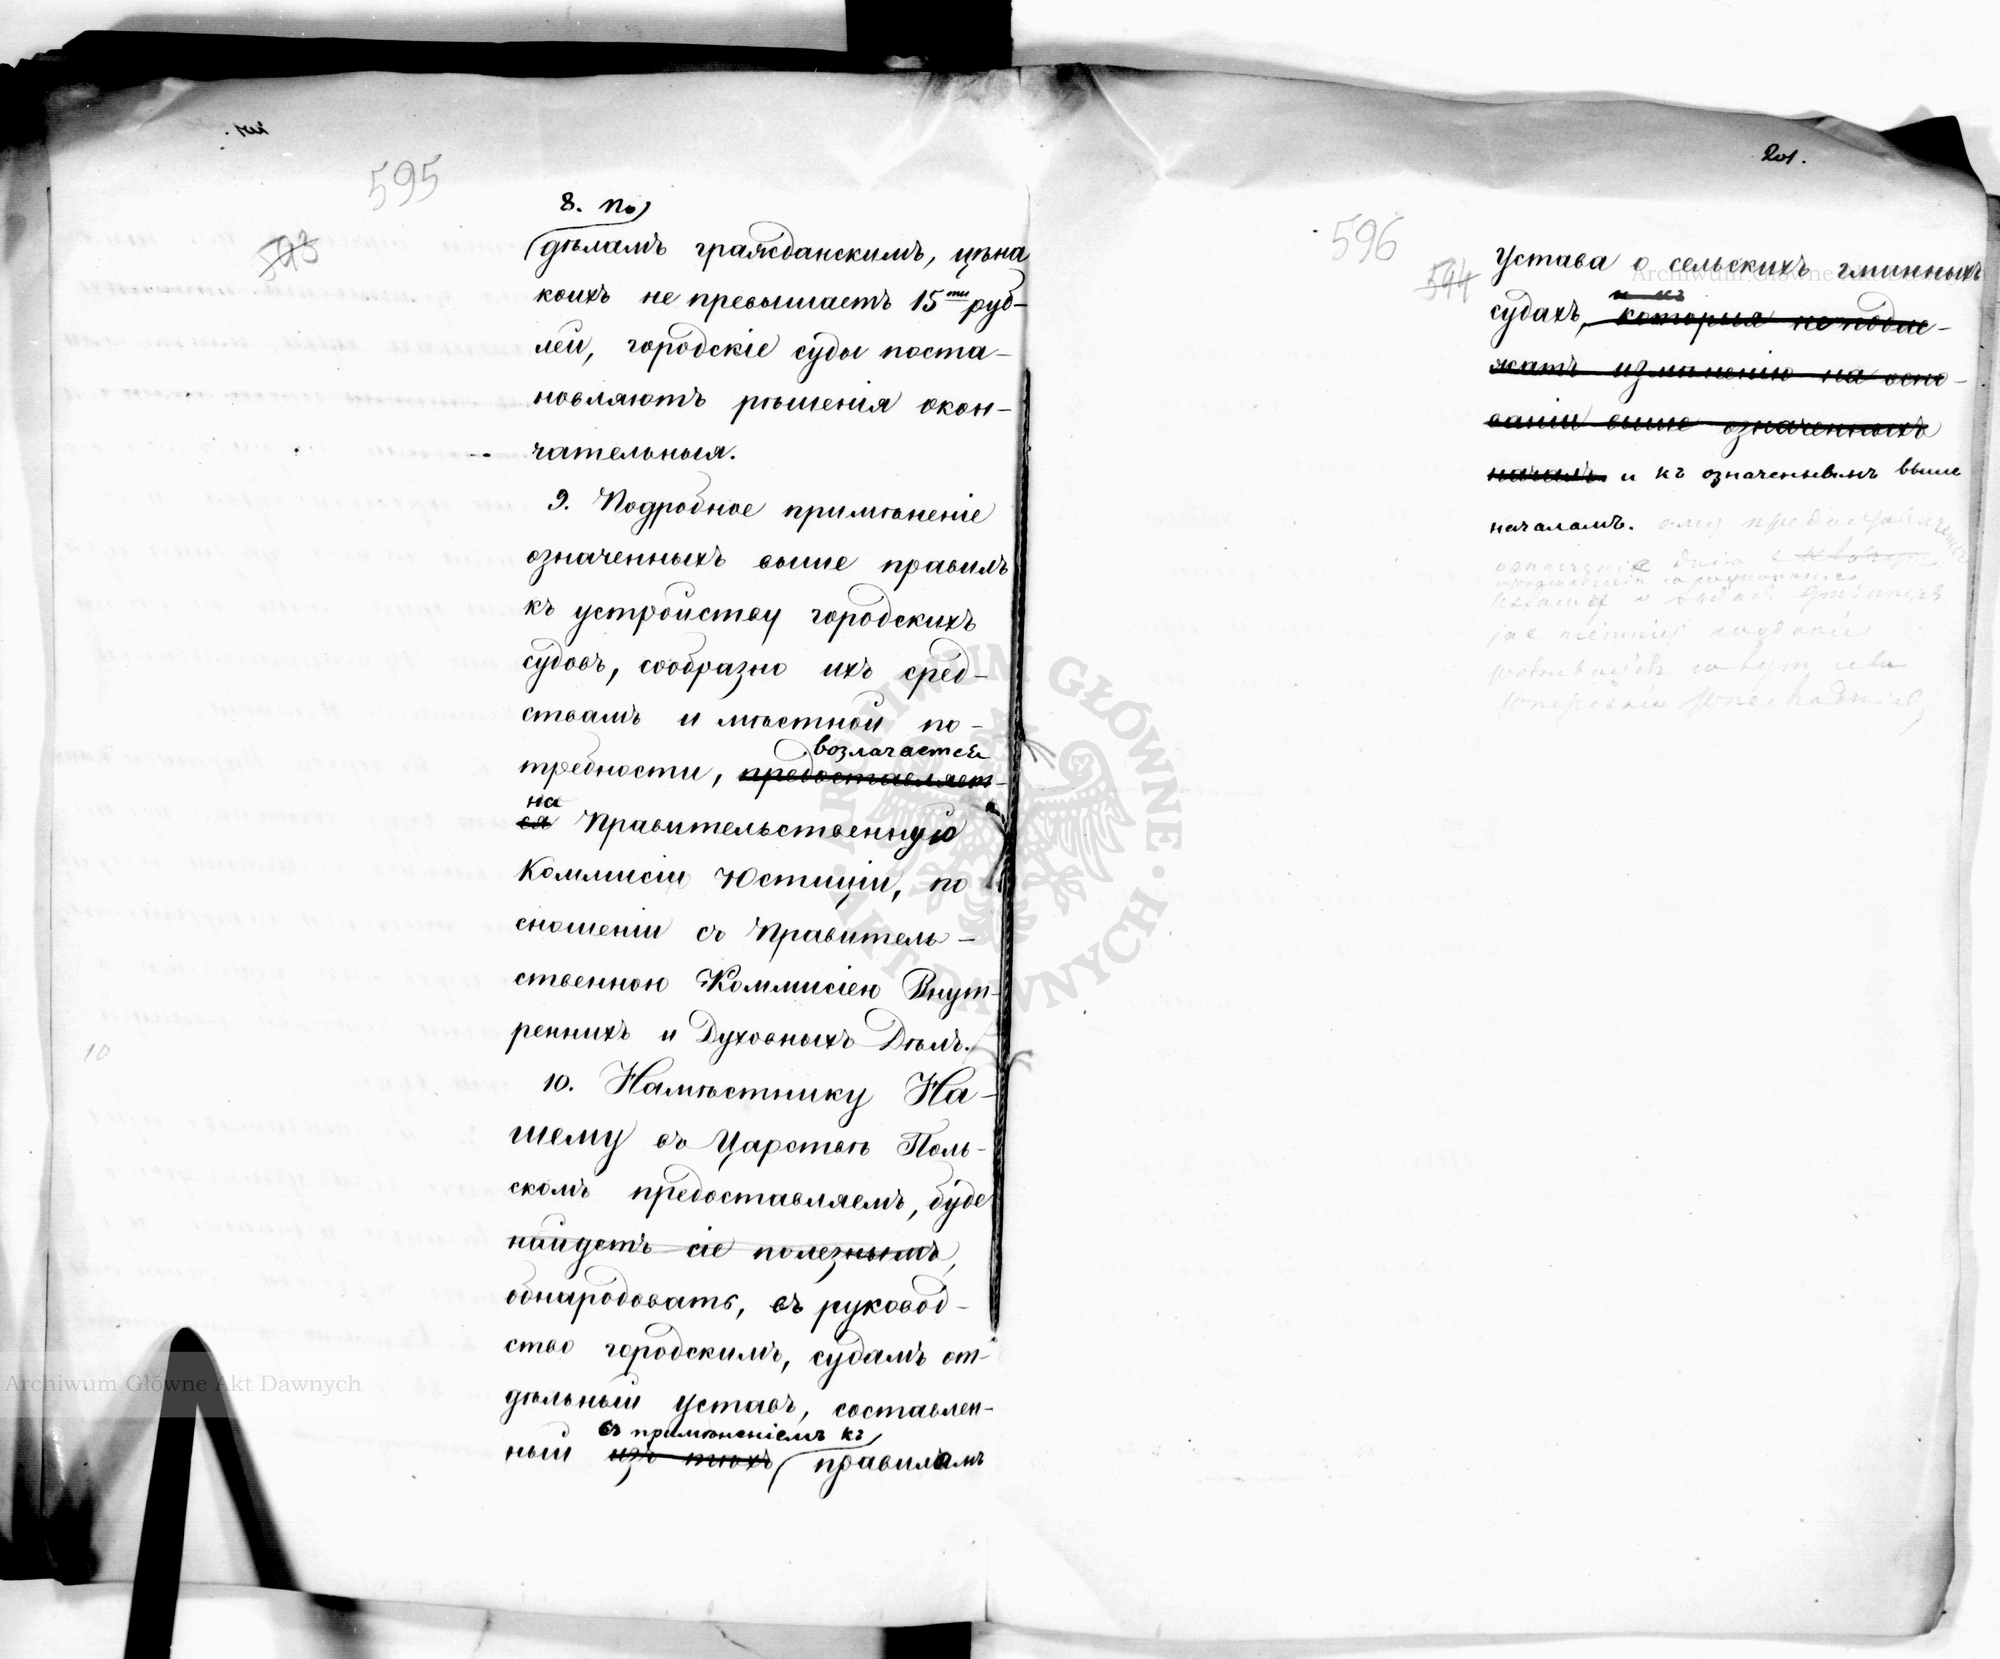 595
593
8. По
дѣламъ гражданскимъ, цѣна
коихъ не превышаетъ 15ти руб-
лей, городскіе суды поста-
новляютъ рѣшенія окон-
чательныя.
9. Подробное примѣненіе
означенныхъ выше правилъ
къ устройству городскихъ
судовъ, сообразно ихъ сред-
ствамъ и мѣстной по-
возлагается
требности, предоставляет-
на
ся Правительственную
Коммисіи Юстиціи, по
сношеніи съ Правитель-
ственною Коммисіею Внут-
реннихъ и Духовныхъ Дѣлъ.
10
10. Намѣстнику На-
шему въ Царствѣ Поль-
скомъ предоставляемъ, буде
найдетъ сіе полезнымъ,
обнародовать, въ руковод-
ство городскимъ, судамъ от-
дѣльный уставъ, составлен-
съ примѣненіемъ къ
ный изъ тѣхъ правиламъ
201.
596
594
Устава о сельскихъ гминныхъ
и къ
судахъ, которыя не подле-
жатъ измѣненію на осно-
ваніи выше означенныхъ
началъ и къ означеннымъ выше
началамъ.
Archiwum Główne Akt Dawnych
Archiwum Główne Akt Dawnych
ARCHIWUM GŁÓWNE AKT DAWNYCH